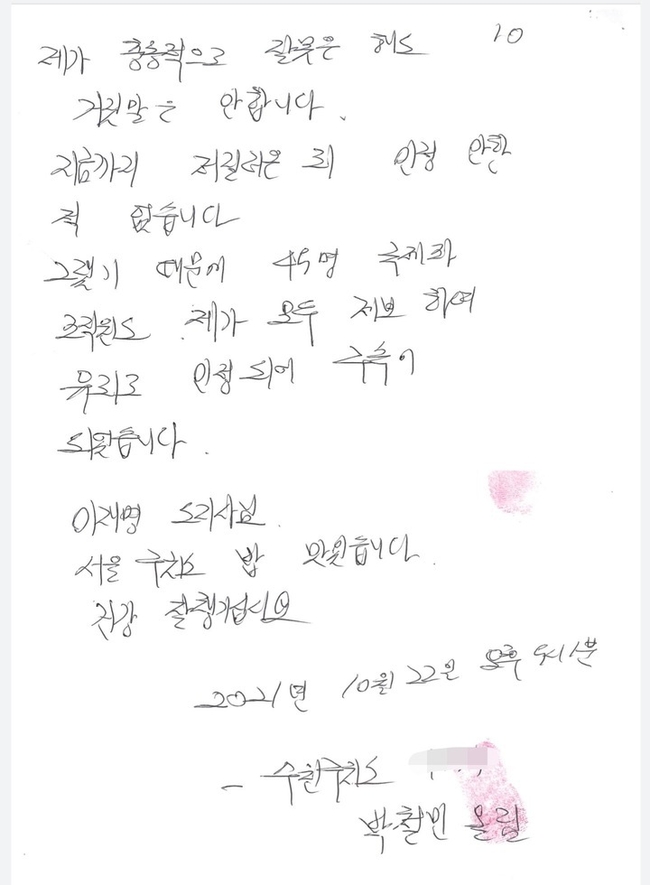 10
제가 충동적으로 잘못은 해도
거짓말은 안합니다.
지금까지 저질러온 죄 인정 안한
적 없습니다
그렇기 때문에 45명 국제파
조직원도 제가 모두 제보 하여
유죄로 인정 되어 구속이
되었습니다.
이재명 도지사님.
서울 구치소 밥 맛있습니다.
건강 잘챙기십시요
2021년 10월 22일 오후 5시 분
- 수원구치소
박철민 올림